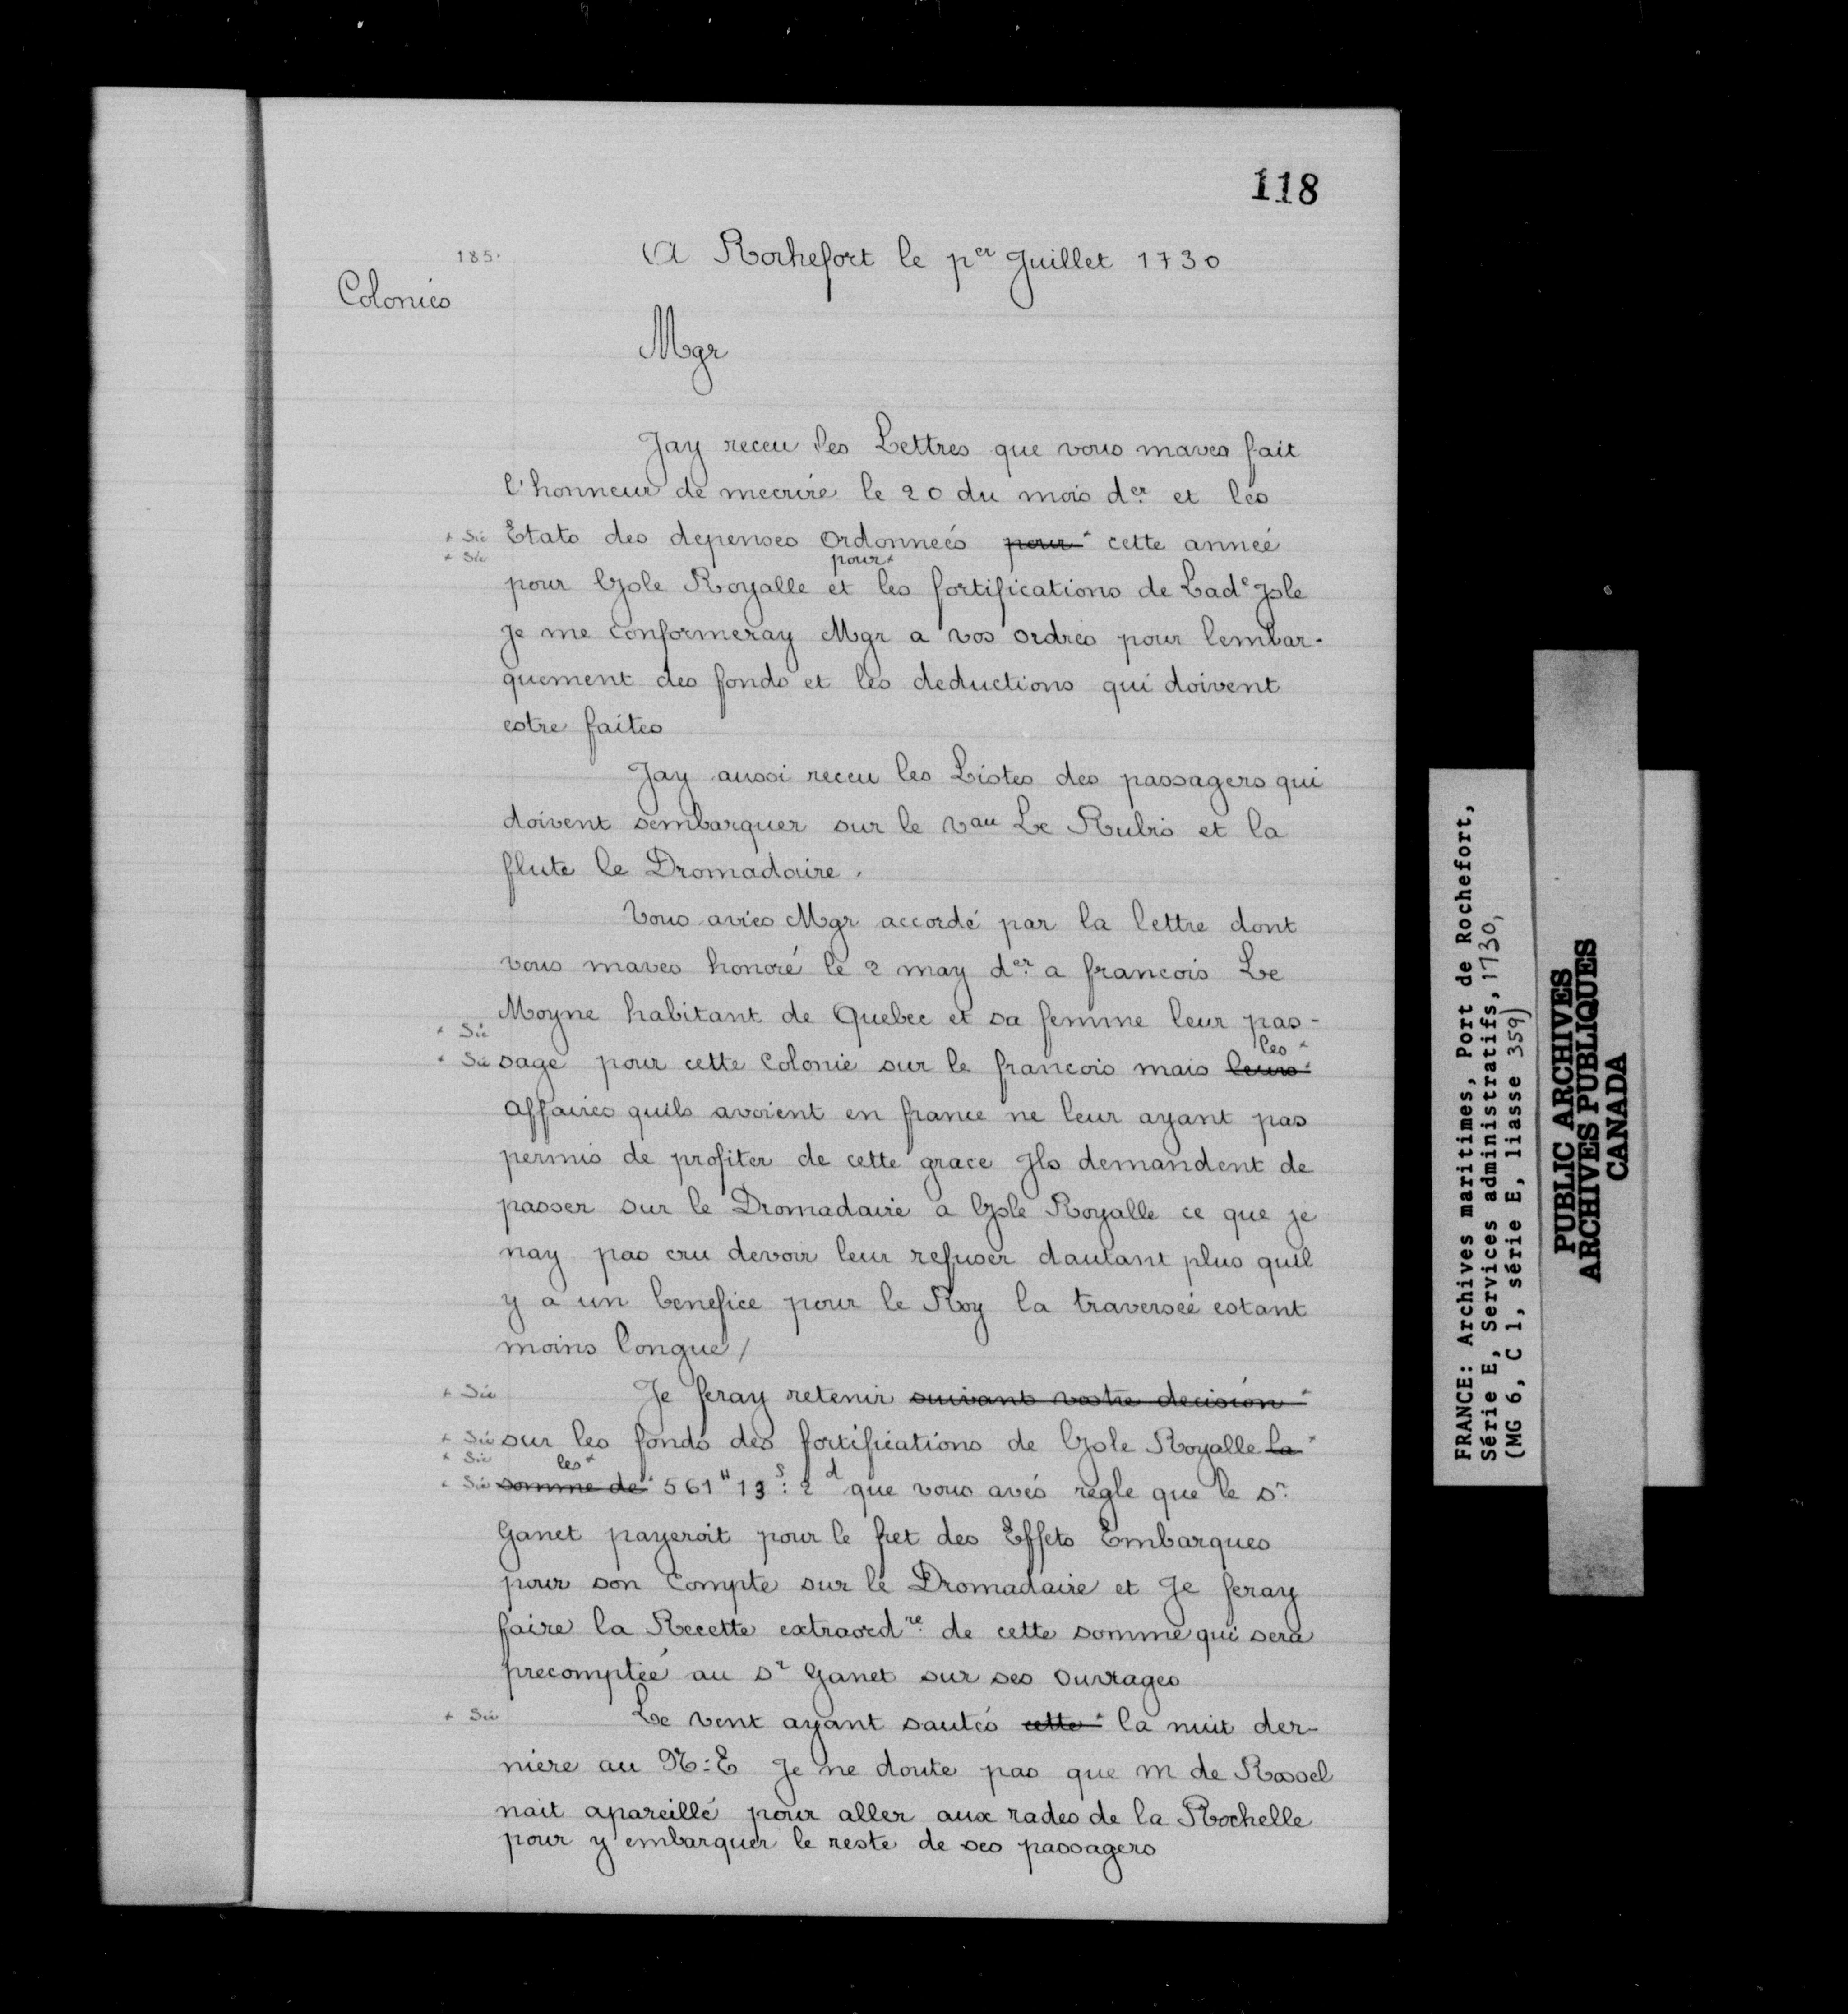 118
185.
A Rochefort le p^er Juillet 1730
Colonies
Mgr
Jay receu les Lettres que vous mavez fait
l'honneur de mecrire le 20 du mois d^er. et les
+ Sic Etats des depenses Ordonneés ~~pour~~ + cette anneé
+ Sic
pour +
pour lJsle Royalle et les fortifications de Lad^e Jsle
Je me Conformeray Mgr a vos ordres pour lembar-
quement des fonds et les deductions qui doivent
estre faites
Jay aussi receu les Listes des passagers qui
doivent sembarquer sur le v^au Le Rubis et la
flute le Dromadaire.
Vous aviés Mgr accordé par la lettre dont
vous maves honoré le 2 may d^er. a francois Le
Moyne habitant de Quebec et sa femme leur pas-
+ Sic
les +
+ Sic sage pour cette Colonie sur le francois mais ~~leurs~~ +
affaires quils avoient en france ne leur ayant pas
permis de profiter de cette grace Jls demandent de
passer sur le Dromadaire a lJsle Royalle ce que je
nay pas cru devoir leur refuser dautant plus quil
y a un benefice pour le Roy la traverseé estant
moins longue /
+ Sic Je feray retenir ~~suivant vostre decision~~ +
+ Sic sur les fonds des fortifications de lJsle Royalle ~~la~~ +
+ Sic les +
+ Sic ~~somme de~~ + 561^# 13^s: 2^d que vous avés regle que le S^r.
Ganet payeroit pour le fret des Effets Embarques
pour son Compte sur le Dromadaire et Je feray
faire la Recette extraord^re. de cette somme qui sera
precompteé au S^r Ganet sur ses Ouvrages
+ Sic Le vent ayant sautés ~~cette~~ + la nuit der-
niere au N:E Je ne doute pas que M de Rossel
nait apareillé pour aller aux rades de la Rochelle
pour y embarquer le reste de ses passagers
FRANCE: Archives maritimes, Port de Rochefort,
Série E, Services administratifs, 1730,
(MG 6, C 1, série E, liasse 359)
PUBLIC ARCHIVES
ARCHIVES PUBLIQUES
CANADA